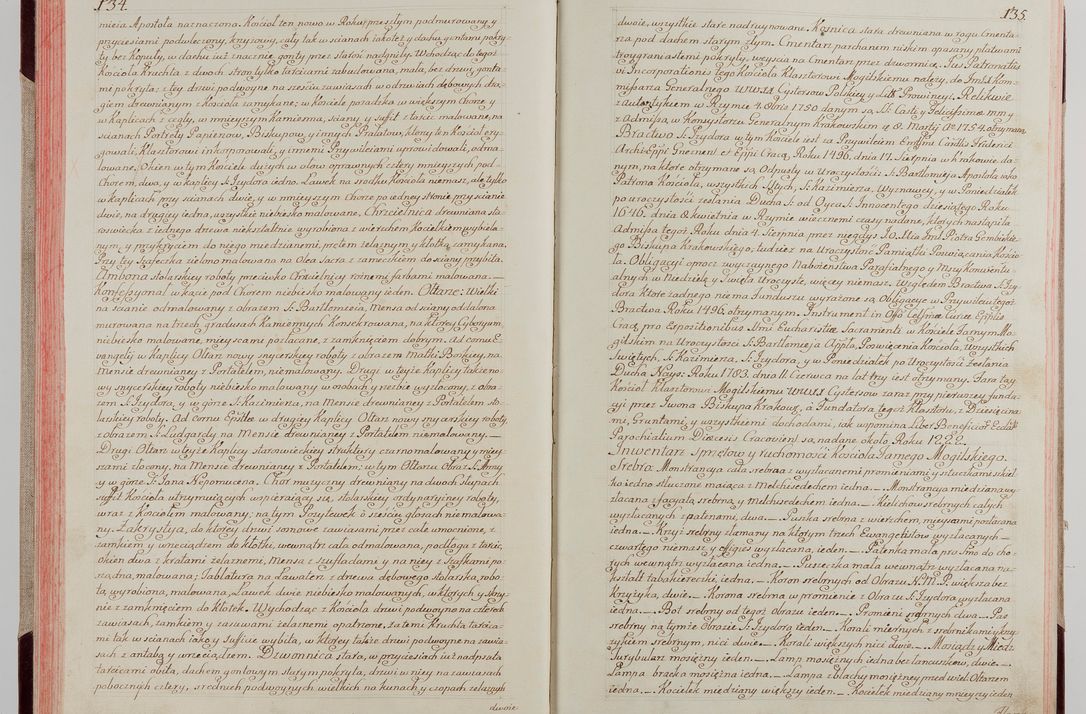 134.
mieia Apostoła naznaczona. Kościoł ten nowo w Roku przeszłym podmurowany, y
przyciesiami podwleczony, krzyżowy, cały tak w scianach iako też y dachu gontami pokry-
ty bez Kopuły, w dachu iuż znacznie gonty przez starość nadpsuły. Wchodząc do tegoż
Kościoła Kruchta z dwoch stron tylko tarcicami zabudowana, mała, bez drzwi, gonta-
mi pokryta; z tey drzwi podwoyne na sześciu zawiasach w odrzwiach dębowych drą-
giem drewnianym z Kościoła zamykane; w Kościele posadzka w większym Chorze y
w Kaplicach z cegły, w mnieyszym z Kamienia, sciany y suffit z tarcic malowane, na
scianach Portrety Papieżow, Biskupow, y innych Prałatow, ktorzy ten Kościoł ery-
gowali, Klasztorowi inkorporowali, y innemi Przywileiami uprowidowali, odma-
lowane. Okien w tym Kościele dużych w ołow oprawnych cztery mnieyszych pod
Chorem dwa, y w kaplicy S: Izydora iedno. Ławek na srodku Kościoła niemasz, ale tylko
w Kaplicach przy scianach dwie, y w mnieyszym Chorze po iedney stronie przy scianie
dwie, na drugiey iedna, wszystkie niebiesko malowane. Chrzcielnica drewniana sta-
roswiecka z iednego drzewa niekształtnie wyrobiona z wierzchem Kociełkiem wybiela-
nym, y przykryciem do niego miedzianemi, prętem żelaznym y kłotką zamykana.
Przy tey szafeczka zielono malowana na Olea Sacra z zameczkiem do sciany przybita.
Ambona stolarskiey roboty przeciwko Chrzcielnicy roznemi farbami malowana. —
Konfessyonał w kącie pod Chorem niebiesko malowany ieden. Ołtarze: Wielki
na scianie odmalowany z obrazem S: Bartłomieia, Mensa od sciany oddalona
murowana na trzech gradusach Kamiennych Konsekrowana, na ktorey Cyboryum
niebiesko malowane, mieyscami pozłacane, z zamknięciem dobrym. Ad cornu E-
vangelij w Kaplicy Ołtarz nowy snycerskiey roboty z obrazem Matki Boskiey, na
Mensie drewnianey z Portatelem, niemalowany. Drugi w teyże Kaplicy także no-
wy snycerskiey roboty niebiesko malowany w osobach y rzezbie wyzłocony, z obra-
zem S. Izydora, y w gorze S: Kazimierza, na Mensie drewnianey z Portatelem sto-
larskiey roboty. Ad cornu Epistlæ w drugiey Kaplicy Ołtarz nowy snycerskiey roboty,
z obrazem S: Ludgardy na Mensie drewnianey z Portatelem niemalowany. —
Drugi Ołtarz w teyże Kaplicy staroswieckiey struktury czarno malowany, y miey-
scami złocony, na Mensie drewnianey z Portatelem; w tym Ołtarzu Obraz S: Anny
y w gorze S: Jana Nepomucena. Chor muzyczny drewniany na dwoch słupach
suffit Kościoła utrzymuiących wspieraiący się, stolarskiey ordynaryiney roboty,
wraz z Kościołem malowany; na tym Pozytewek o sześciu głosach niemalowa-
ny. Zakrystya, do ktorey drzwi sosnowe zawiasami przez całe umocnione, z
zamkiem y wrzeciądzem do kłotki, wewnątrz cała odmalowana, podłoga z tarcic,
okien dwa z kratami żelaznemi, Mensa z szufladami y na niey szafkami po-
rządna, malowana; Tablatura na Lawaterz z drzewa dębowego stolarską robo-
tą wyrobiona, malowana, Ławek dwie niebiesko malowanych, w ktorych skrzy-
nie z zamknięciem do Kłotek. Wychodząc z Kościoła drzwi podwoyne na czterech
zawiasach, zamkiem y zasuwami żelaznemi opatrzone, za temi Kruchta tarcica-
mi tak w scianach iako y suficie wybita, w ktorey także drzwi podwoyne na zawia-
sach z antabą y wrzeciądzem. Dzwonnica stara, w przyciesiach iuż nadpsuta
tarcicami obita, dachem gontowym starym pokryta, drzwi w niey na zawiasach
pobocznych cztery, srednich podwoynych wielkich na kunach y czopach żelaznych
dwoie
135.
dwoie, wszystkie stare nadruynowane. Kosnica stara drewniana w rogu Cmenta-
rza pod dachem starym złym. Cmentarz parchanem niskim opasany, płatwami
trogranowatemi pokryty, weyscia na Cmentarz przez dzwonnicę. Jus Patronatus
vi Incorporationis tego Kościoła Klasztorowi Mogilskiemu należy, do Jmci X Kom-
missarza Generalnego WWXX Cystersow Polskiey y Litt: Prowincyi. Relikwie
z autentykiem w Rzymie 4. 8bris 1750 danym są SS. Casti, y Felicissimæ mm: y
z Admissą w Konsystorzu Generalnym Krakowskim sub 8. Martij Ao: 1754. otrzymaną.
Bractwo S: Izydora w tym Kościele iest za Przywileiem Emssmi Cardlis Friderici
Archi Eppi Gnesnen: et Eppi Cracq. Roku 1496. dnia 17. Sierpnia w Krakowie da-
nym, na ktore otrzymane są Odpusty w Uroczystość S: Bartłomieja Apostoła iako
Patrona Kościoła, wszystkich SStych, S: Kazimierza, Wyznawcy, y w Poniedziałek
po uroczystości zesłania Ducha S: od Oyca S: Innocentego dziesiątego Roku
1646. dnia 8. kwietnia w Rzymie wiecznemi czasy nadane, ktorych nastąpiła
Admissa tegoż Roku dnia 4. Sierpnia przez niegdyś JO. Xcia Jmci Piotra Gembickie-
go Biskupa Krakowskiego; tudzież na Uroczystość Pamiątki Poswiącania Kościo-
ła. Obligacyi oprocz zwyczaynego Nabożeństwa Parafialnego y Mszy Konwentu-
alnych w Niedzielę y Święta Uroczyste, więcey niemasz. Względem Bractwa S: Izy-
dora Ktore żadnego niema Funduszu wyrażone są Obligacye w Przywileiu tegoż
Bractwa Roku 1496. otrzymanym. Instrument in Offo Celssmæ Curiæ Epplis
Cracq. pro Expositionibus Ssmi Eucharistiæ Sacramenti w Kościele Farnym Mo-
gilskim na Uroczystości S: Bartłomieja Appła, Poswięcenia Kościoła, Wszystkich
Swiętych, S: Kazimierza, S: Izydora, y w Poniedziałek po Uroczystości Zesłania
Ducha Nayśo: Roku 1783. dnia 11. Czerwca na lat trzy iest otrzymany. Fara ta y
Kościoł Klasztorowi Mogilskiemu WWXX Cystersow zaraz przy pierwszey funda-
cyi przez Iwona Biskupa Krakowsk: a Fundatora tegoż Klasztoru, z Dziesięcina-
mi, Gruntami, y wszystkiemi dochodami, iak wspomina Liber Beneficior: Eccllr:
Parochialium Diœcesis Cracovien: są nadane około Roku 1222.
Inwentarz Sprzętow y ruchomości Kościoła Farnego Mogilskiego.
Srebro. Monstrancya cała srebrna z wyzłacanemi promieniami y sztuczkami szkieł-
ko iedno stłuczone maiąca z Melchisedechem iedna. — Monstrancya miedziana wy-
złacana z facyatą srebrną y Melchisedechem iedna. — Kielichow srebrnych całych
wyzłacanych z patenami, dwa. — Puszka srebrna z wierzchem, mieyscami pozłacana
iedna. — Krzyż srebrny złamany na ktorym trzech Ewangelistow wyzłacanych —
czwartego niemasz, y effigies wyzłacana, ieden. — Patenka mała pro Smo do cho-
rych wewnątrz wyzłacana iedna. — Puszeczka mała wewnątrz wyzłacana na
kształt tabakiereczki, iedna. — Koron srebrnych od Obrazu N.M.P. większa bez
Krzyżyka, dwie. — Korona srebrna w promienie z Obrazu S: Izydora wyzłacana
iedna. — Bot srebrny od tegoż obrazu ieden. — Promieni srebrnych dwa. — Pas
srebrny na tymże Obrazie S: Izydora ieden. — Korali miernych z srebrnikami y krzy-
żykiem srebrnym, nici dwie. — Korali większych nici dwie. — Mosiądz y Miedz.
Turybularz mosiężny ieden. — Lamp mosiężnych iedna bez łancuszkow, dwie. —
Lampa brzęka mosiężna iedna. — Lampa z blachy mosiężney przed wiel: Ołtarzem
iedna. — Kociełek miedziany większy ieden. — Kociełek miedziany mnieyszy ieden